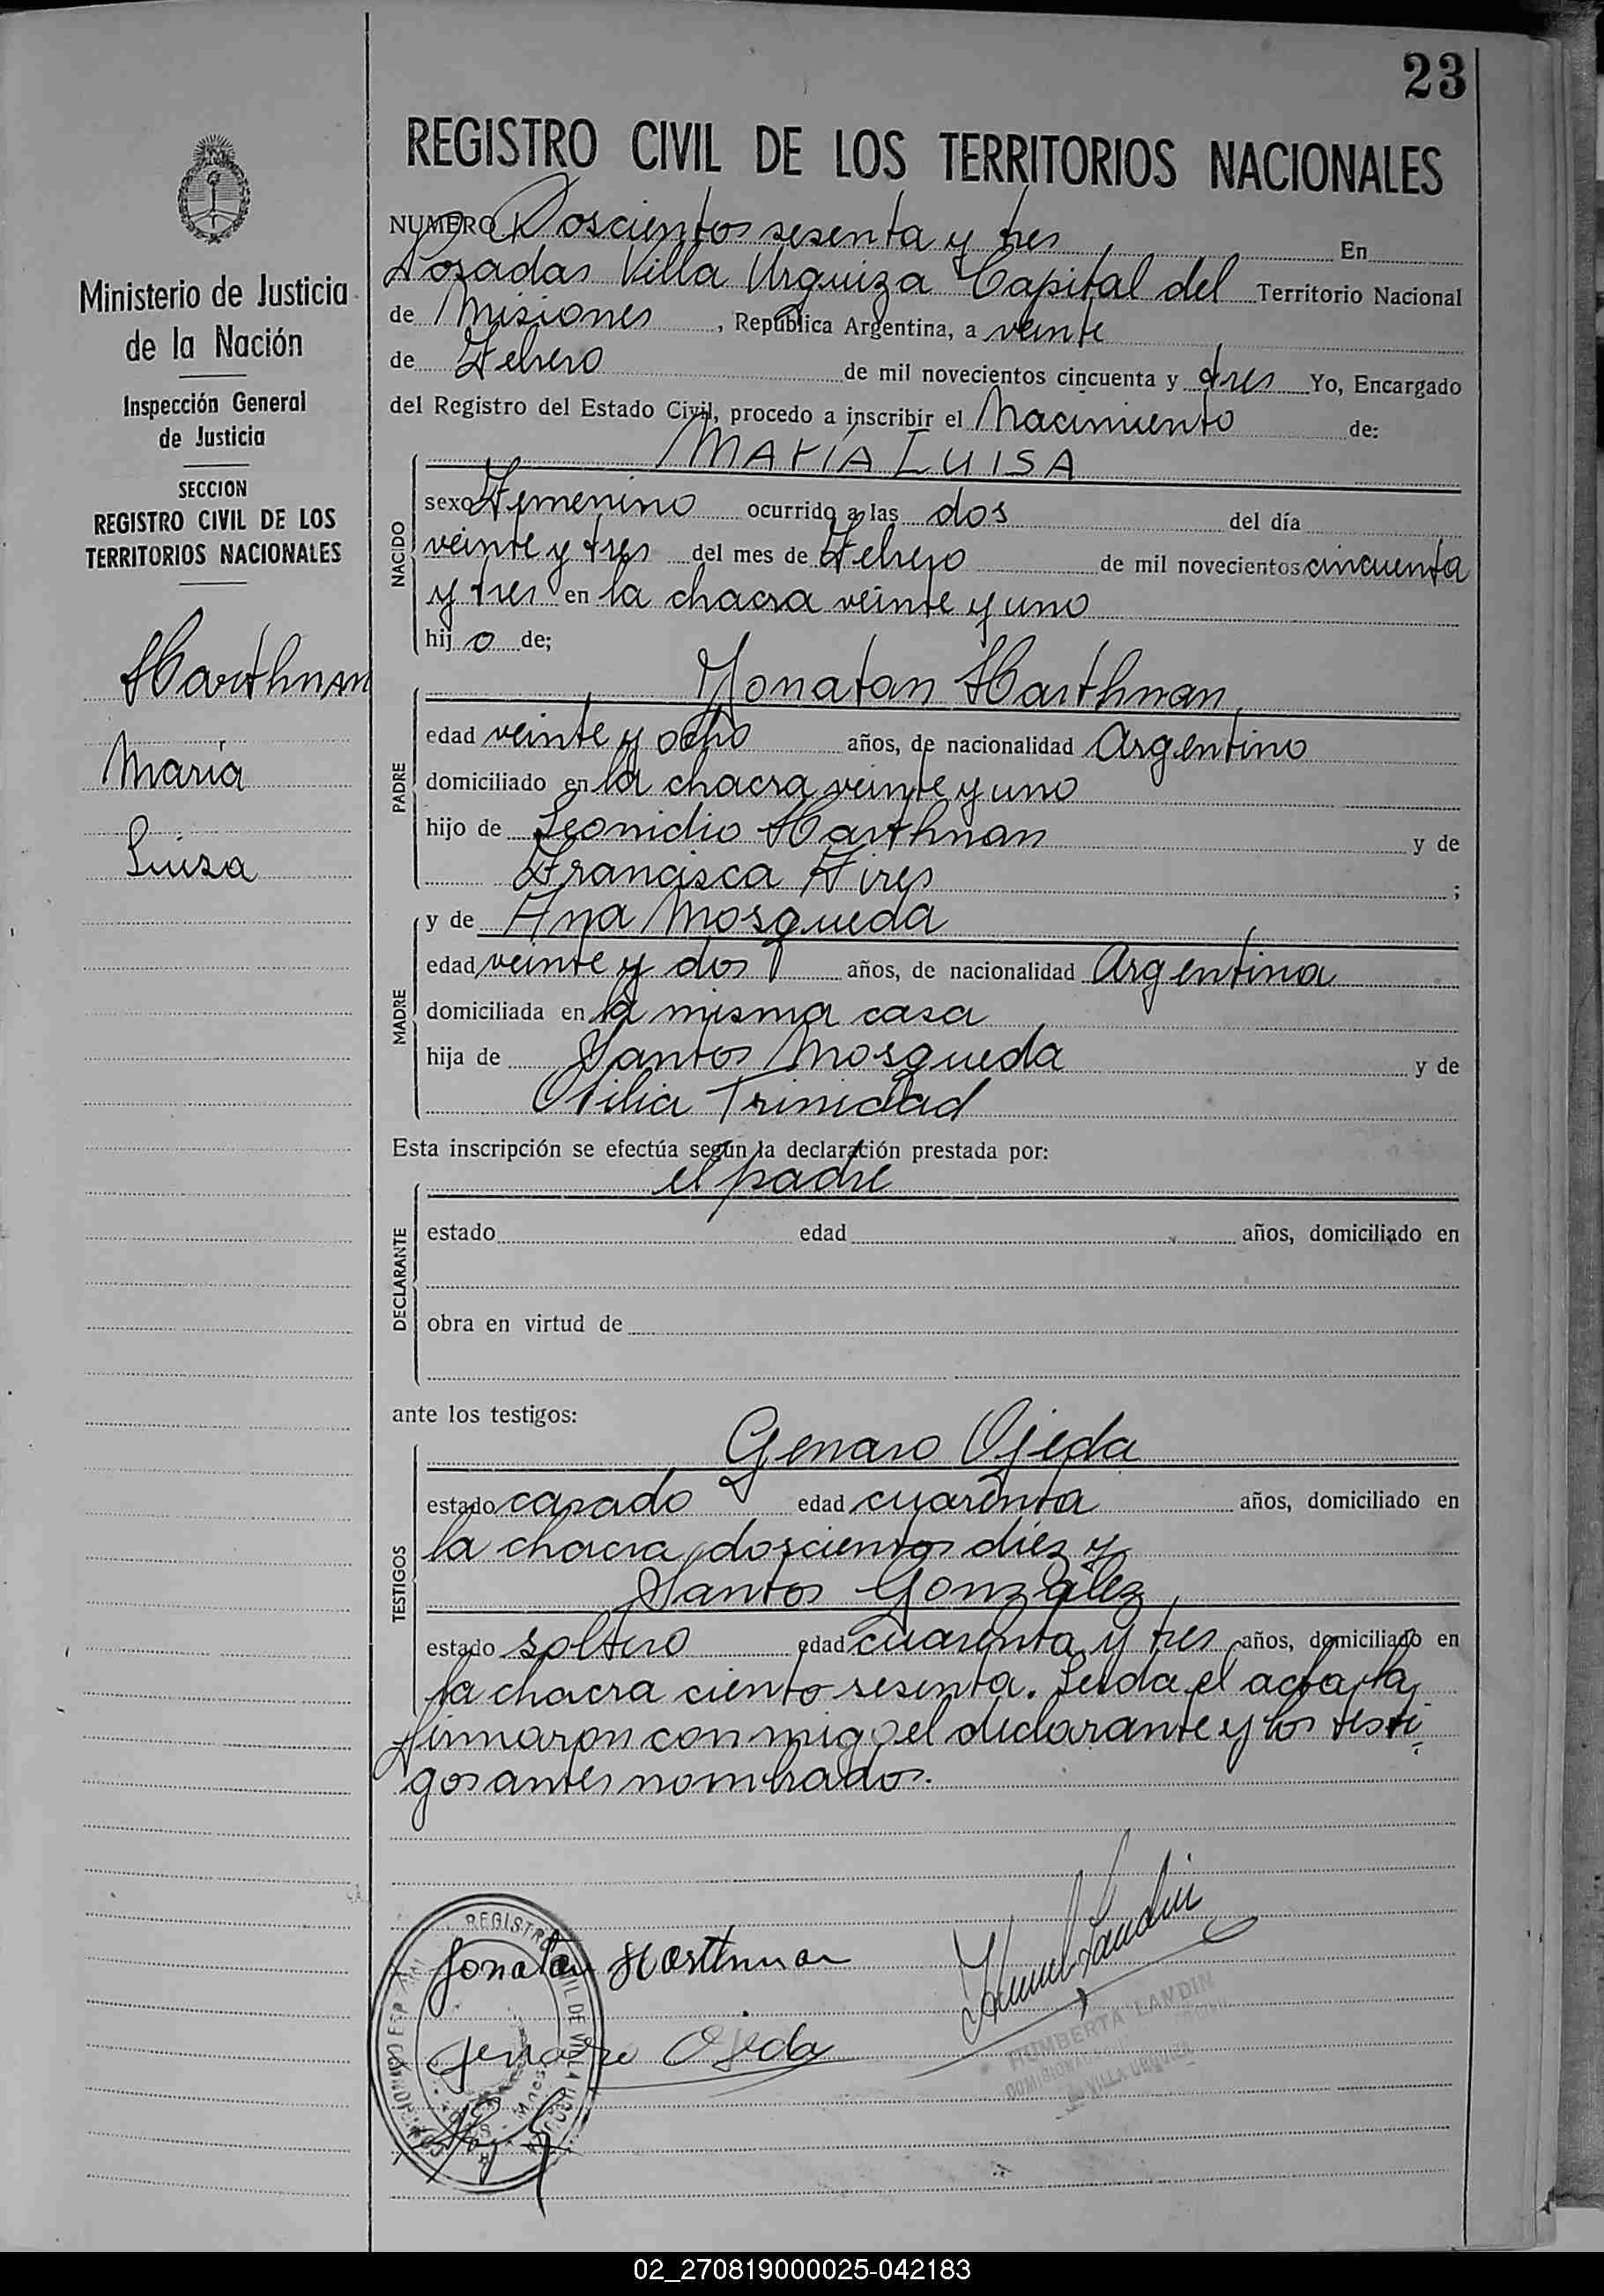 23
REGISTRO CIVIL DE LOS TERRITORIOS NACIONALES
Ministerio de Justicia
de la Nación
Inspección General
de Justicia
SECCION
REGISTRO CIVIL DE LOS
TERRITORIOS NACIONALES
Harthman
María
Luisa
NUMERO Doscientos sesenta y tres En
Posadas Villa Urquiza Capital del Territorio Nacional
de Misiones, República Argentina, a veinte
de Febrero de mil novecientos cincuenta y tres Yo, Encargado
del Registro del Estado Civil, procedo a inscribir el Nacimiento de:
MARÍA LUISA
NACIDO
sexo Femenino ocurrido a las dos del día
veinte y tres del mes de Febrero de mil novecientos cincuenta
y tres en la chacra veinte y uno
hijo de;
Yonatan Harthman
PADRE
edad veinte y ocho años, de nacionalidad Argentino
domiciliado en la chacra veinte y uno
hijo de Leonidio Harthman y de
Francisca Aires;
MADRE
y de Ana Mosqueda
edad veinte y dos años, de nacionalidad Argentina
domiciliada en la misma casa
hija de Santos Mosqueda y de
Otilia Trinidad
Esta inscripción se efectúa según la declaración prestada por:
el padre
DECLARANTE
estado edad años, domiciliado en
obra en virtud de
ante los testigos:
Genaro Ojeda
TESTIGOS
estado casado edad cuarenta años, domiciliado en
la chacra doscientos diez y
Santos González
estado soltero edad cuarenta y tres años, domiciliado en
la chacra ciento sesenta. Leida el acta la
firmaron conmigo el declarante y los testi
gos antes nombrados.
REGISTRO CIVIL DE VILLA URQUIZA
Jonatan Harthman
Genaro Ojeda
HUMBERTA LANDIN
VILLA URQUIZA
02_270819000025-042183